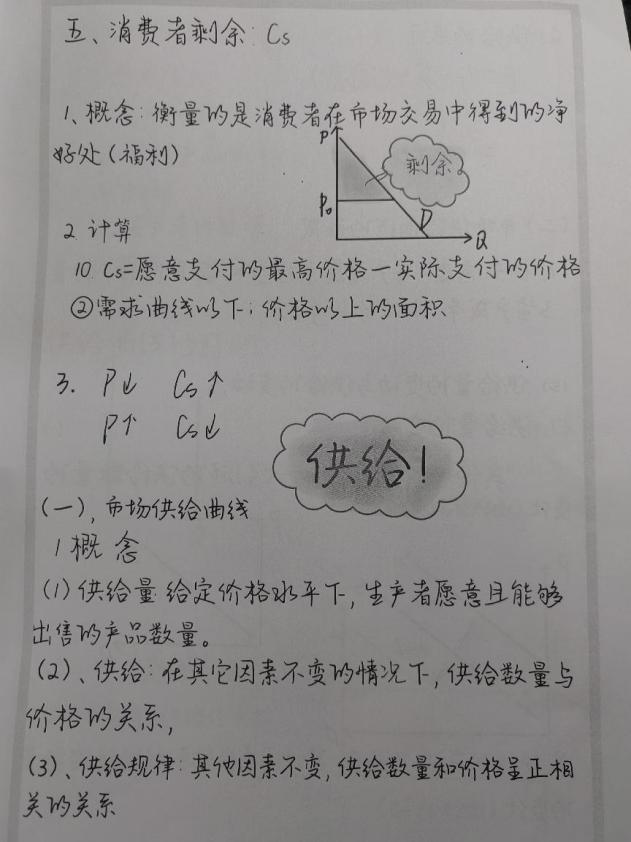 五、消费者剩余: Cs
1、概念: 衡量的是消费者在市场交易中得到的净
好处(福利)
P
剩余
P₀
D
Q
2 计算
10. Cs=愿意支付的最高价格一实际支付的价格
②需求曲线以下; 价格以上的面积
3. P↓ Cs↑
P↑ Cs↓
供给!
(一), 市场供给曲线
1 概念
(1) 供给量: 给定价格水平下, 生产者愿意且能够
出售的产品数量。
(2)、供给: 在其它因素不变的情况下, 供给数量与
价格的关系,
(3)、供给规律: 其他因素不变, 供给数量和价格呈正相
关的关系